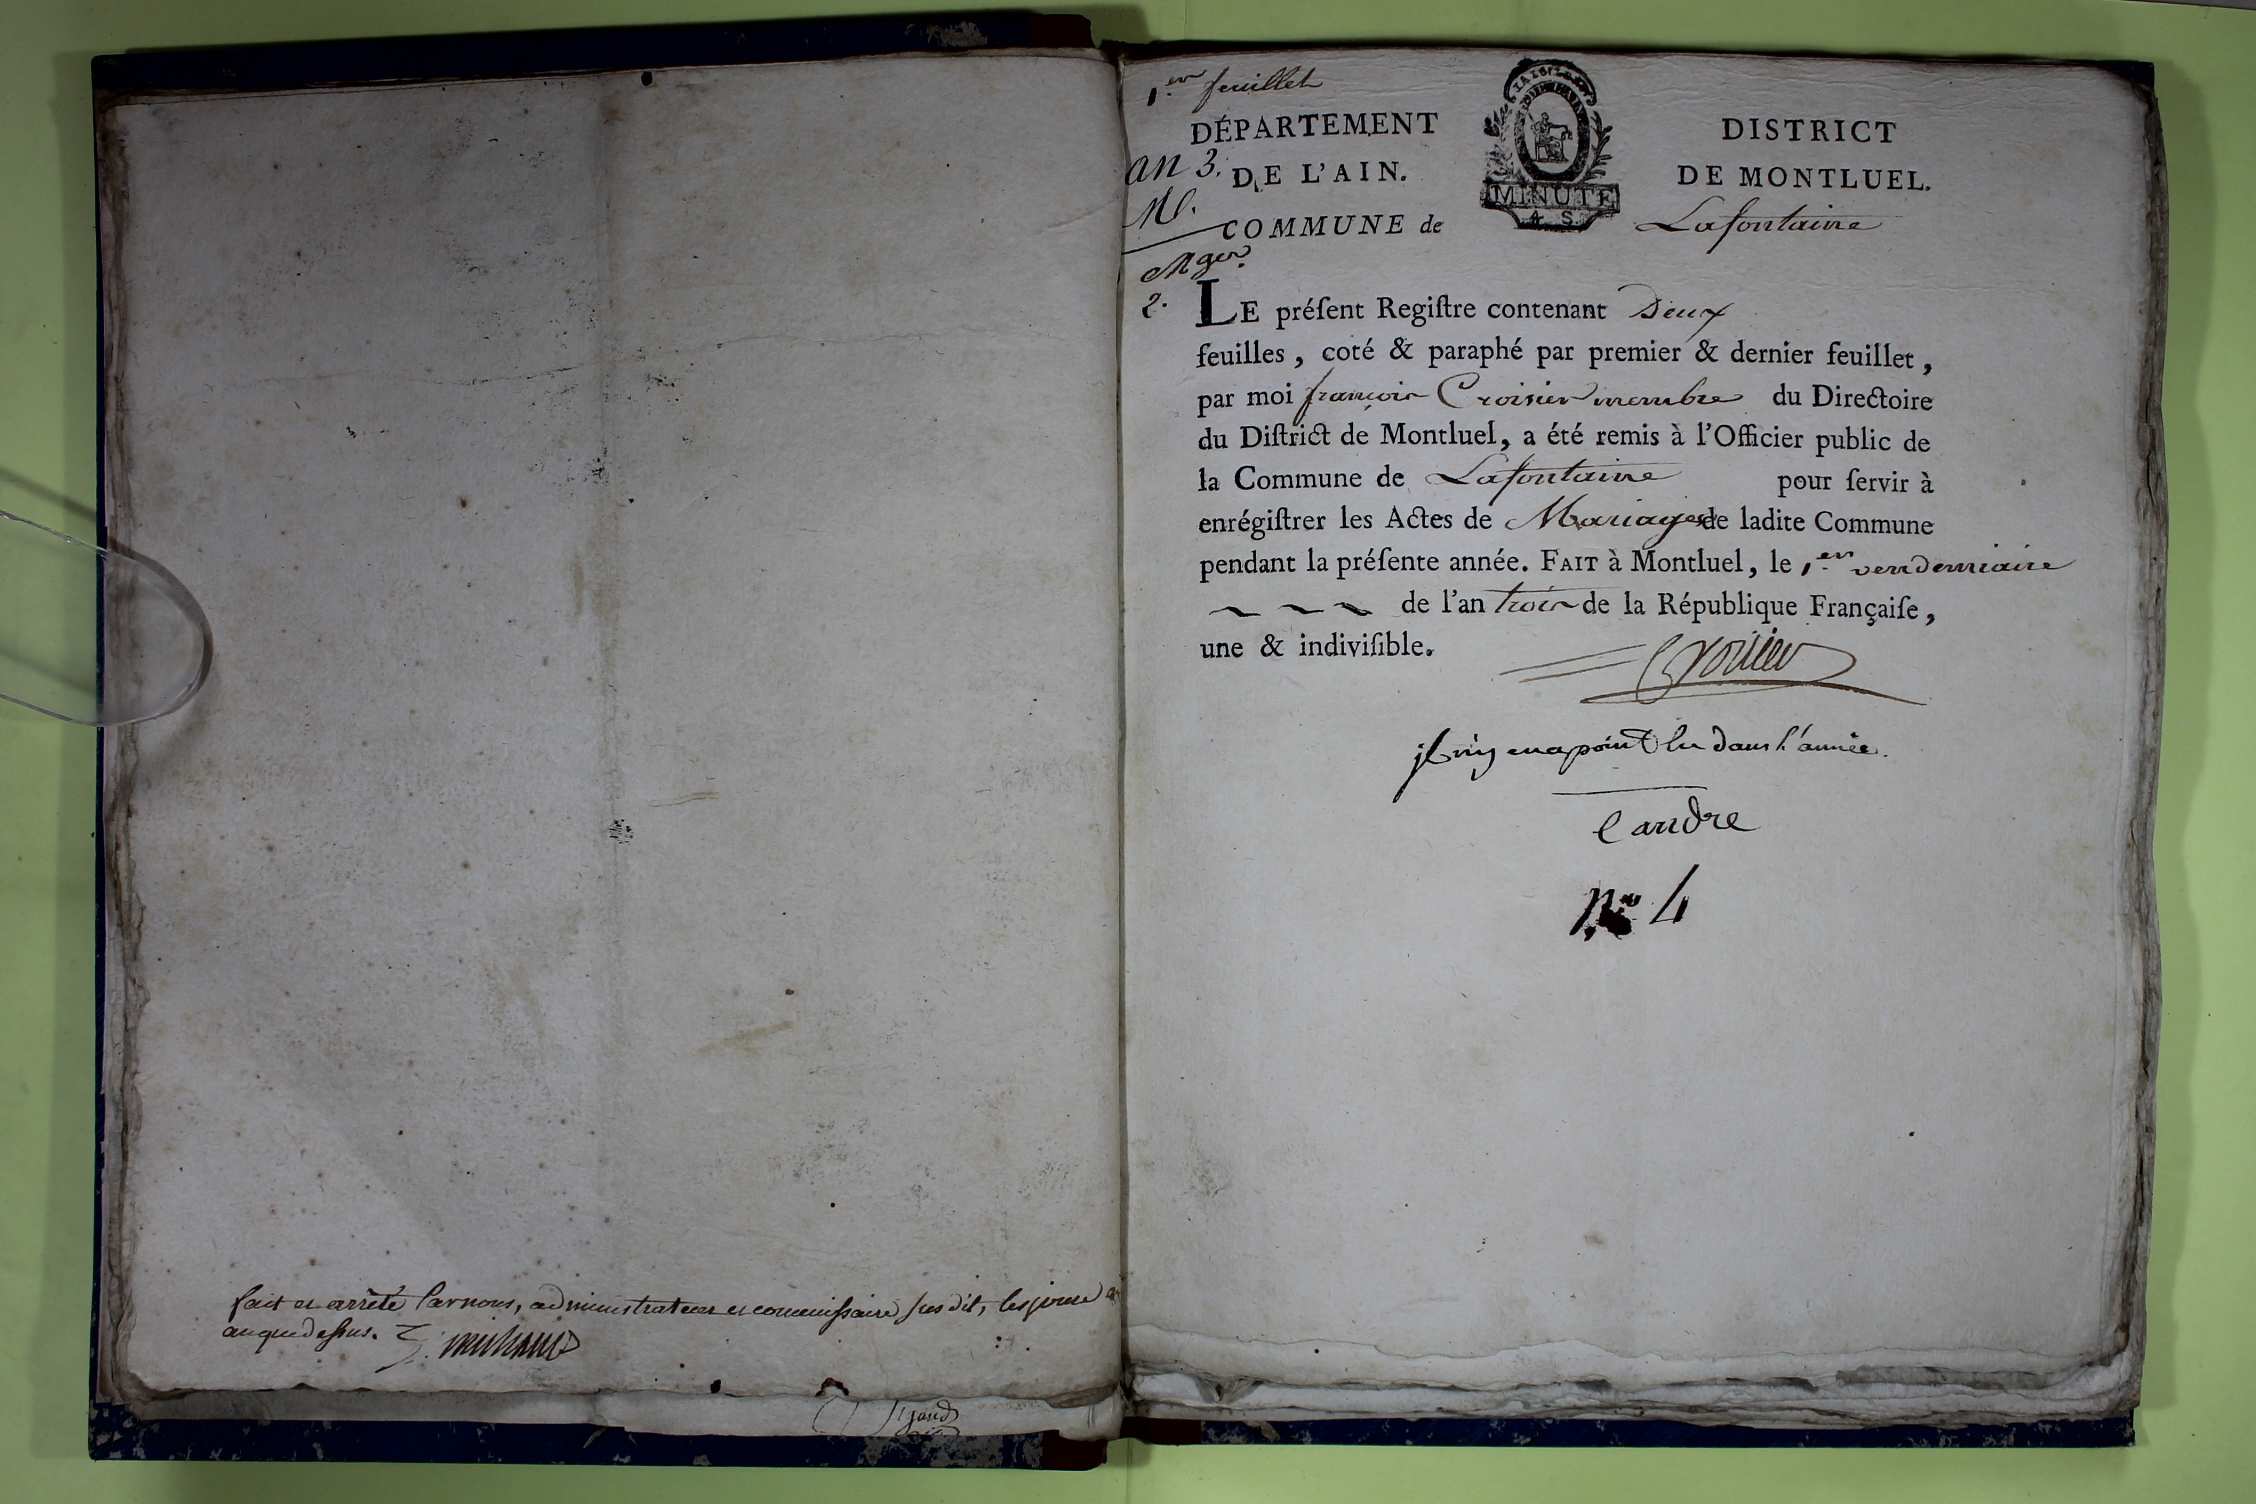 fait et arrêté par nous, administrateur et commissaire susdit, les jours et
an que dessus.
1.er feuillet
DÉPARTEMENT
DE L'AIN.
an 3.
M.
COMMUNE de
MINUTE
4 S
DISTRICT
DE MONTLUEL.
Lafontaine
2.
LE préſent Regiſtre contenant Deux
feuilles, coté & paraphé par premier & dernier feuillet,
par moi françois Croisier membre du Directoire
du Diſtrict de Montluel, a été remis à l'Officier public de
la Commune de Lafontaine pour ſervir à
enrégiſtrer les Actes de Mariages de ladite Commune
pendant la préſente année. FAIT à Montluel, le 1.er vendemiaire
de l'an trois de la République Françaiſe,
une & indiviſible.
Croisier
il n'y en a point eu dans l'année.
Candre
N.o 4